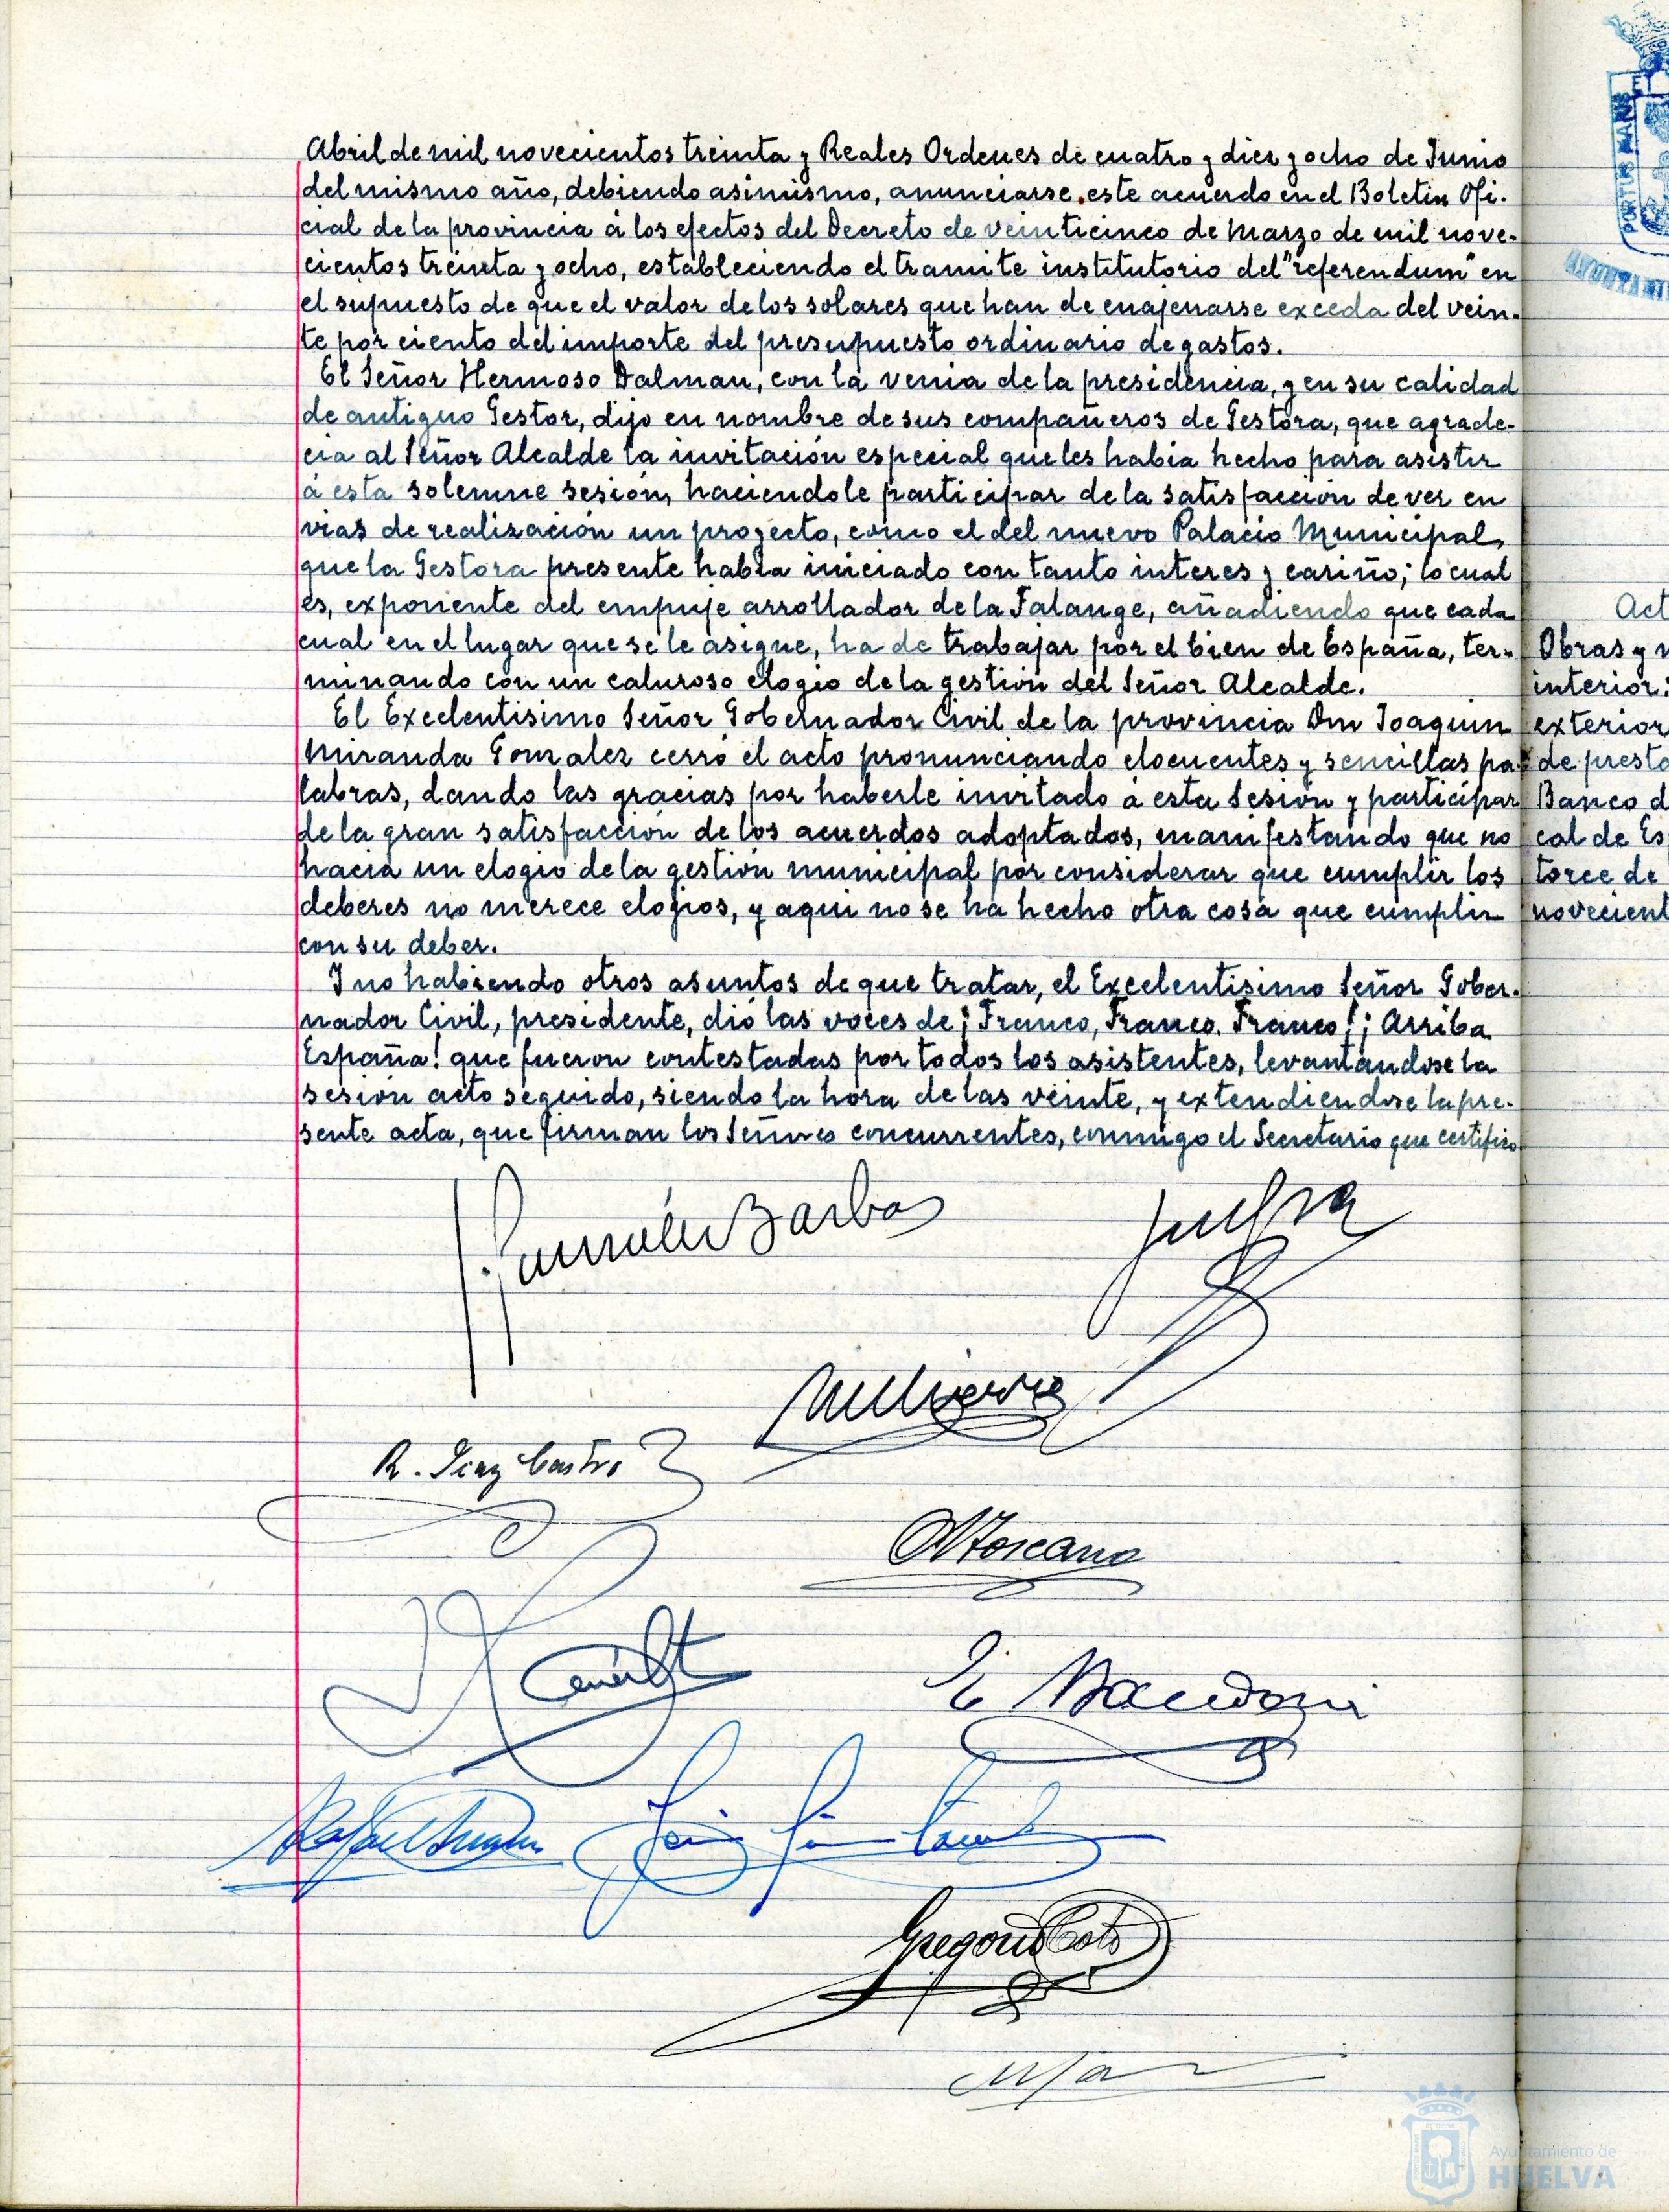 Abril de mil novecientos treinta y Reales Ordenes de cuatro y diez y ocho de Junio
del mismo año, debiendo asimismo, anunciarse este acuerdo en el Boletin Ofi-
cial de la provincia á los efectos del Decreto de veinticinco de Marzo de mil nove-
cientos treinta y ocho, estableciendo el tramite institutorio del "referendum" en
el supuesto de que el valor de los solares que han de enajenarse exceda del vein-
te por ciento del importe del presupuesto ordinario de gastos.
El Señor Hermoso Dalmau, con la venia de la presidencia, y en su calidad
de antiguo Gestor, dijo en nombre de sus compañeros de Gestora, que agrade-
cia al Señor Alcalde la invitación especial que les habia hecho para asistir
á esta solemne sesión, haciendole participar de la satisfacción de ver en
vias de realización un proyecto, como el del nuevo Palacio Municipal,
que la Gestora presente habia iniciado con tanto interes y cariño; lo cual
es, exponente del empuje arrollador de la Falange, añadiendo que cada
cual en el lugar que se le asigne, ha de trabajar por el bien de España, ter-
minando con un caluroso elogio de la gestión del Señor Alcalde.
El Excelentisimo Señor Gobernador Civil de la provincia Don Joaquin
Miranda Gonzalez cerró el acto pronunciando elocuentes y sencillas pa-
labras, dando las gracias por haberle invitado á esta Sesión y participar
de la gran satisfacción de los acuerdos adoptados, manifestando que no
hacia un elogio de la gestión municipal por considerar que cumplir los
deberes no merece elogios, y aqui no se ha hecho otra cosa que cumplir
con su deber.
Y no habiendo otros asuntos de que tratar, el Excelentisimo Señor Gober-
nador Civil, presidente, dió las voces de ¡Franco, Franco, Franco! ¡Arriba
España! que fueron contestadas por todos los asistentes, levantandose la
sesión acto seguido, siendo la hora de las veinte, y extendiendose la pre-
sente acta, que firman los Señores concurrentes, conmigo el Secretario que certifico
González Barba
R. Diaz Castro
Toscano
Gregorio Coto
PORTUS MARIS
Act
Obras y
interior:
exterior
de presta
Banco d
cal de Es
torce de
novecient
Ayuntamiento de
HUELVA